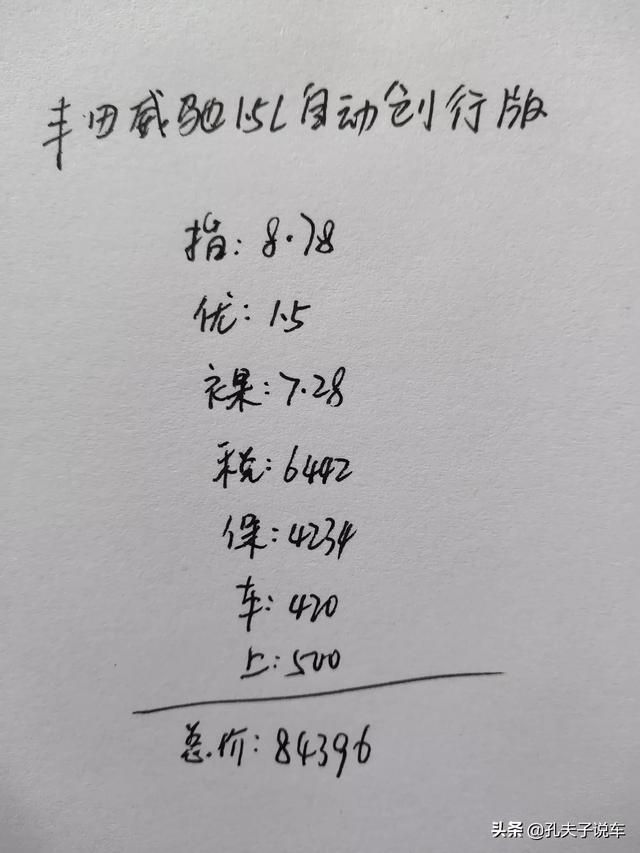 丰田威驰1.5L自动创行版
指: 8.78
优: 1.5
裸: 7.28
税: 6442
保: 4234
车: 420
上: 500
总价: 84396
头条 @孔夫子说车